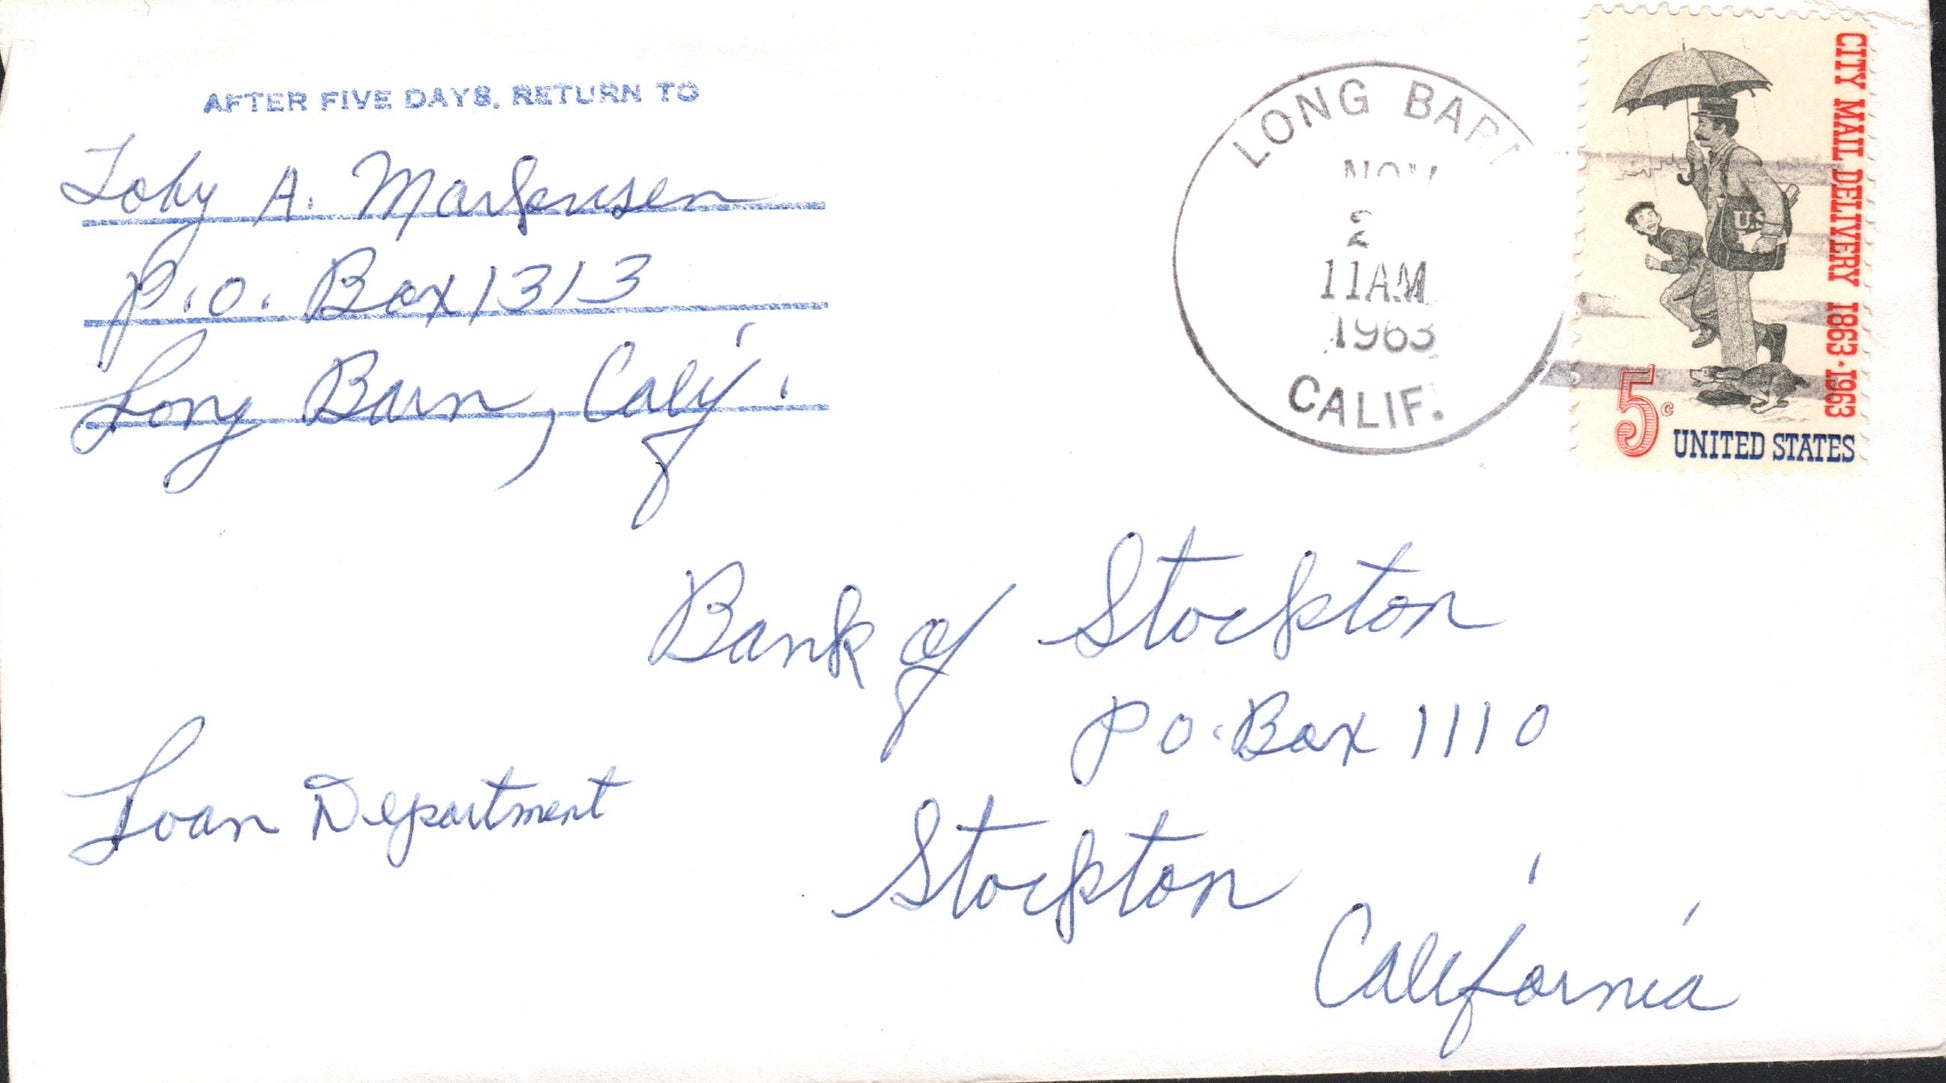 AFTER FIVE DAYS, RETURN TO
Toby A. Margensen
P.O. Box 1313
Long Barn, Calif.
LONG BARN
NOV
2
11 AM
1963
CALIF.
CITY MAIL DELIVERY 1863·1963
U.S
5c
UNITED STATES
Bank of Stockton
PO. Box 1110
Loan Department
Stockton
California